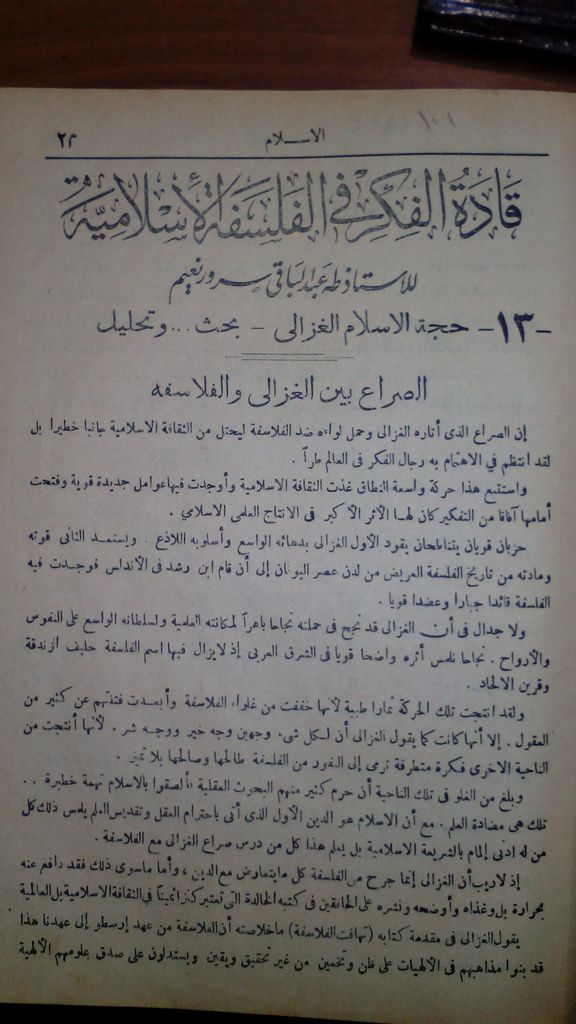 الاسلام
٢٢
قَادَةُ الفِكْرِ فِي الفَلسَفَةِ الأِسْلَامِيَّةِ
للاستاذ طه عبد الباقي سرور نعيم
-١٣- حجة الاسلام الغزالى - بحث ... وتحليل
الصراع بين الغزالى والفلاسفه
إن الصراع الذى أثاره الغزالى وحمل لواءه ضد الفلاسفة ليحتل من الثقافة الاسلامية جانبا خطيرا بل
لقد انتظم في الاهتمام به رجال الفكر فى العالم طراً .
واستتبع هذا حركة واسعة النطاق غذت الثقافة الاسلامية وأوجدت فيها عوامل جديدة قوية وفتحت
أمامها آفاقا من التفكير كان لها الأثر الأكبر فى الانتاج العلمى الاسلامي .
حزبان قويان يتناطحان يقود الأول الغزالى بدهائه الواسع وأسلوبه اللاذع . ويستمد الثانى قوته
ومادته من تاريخ الفلسفة العريض من لدن عصر اليونان إلى أن قام ابن رشد فى الأندلس فوجدت فيه
الفلسفة قائدا جبارا وعضدا قويا .
ولا جدال فى أن الغزالى قد نجح فى حملته نجاحا باهراً لمكانته العلمية ولسلطانه الواسع على النفوس
والأرواح . نجاحا نلمس أثره واضحا قويا فى الشرق العربى إذ لا يزال فيها اسم الفلسفة حليف الزندقة
وقرين الالحاد .
ولقد انتجت تلك الحركة ثمارا طيبة لأنها خففت من غلواء الفلاسفة وأبعدت فتنتهم عن كثير من
العقول . إلا أنها كانت كما يقول الغزالى أن لكل شىء وجهين وجه خير ووجه شر . لأنها أنتجت من
الناحية الاخرى فكرة متطرفة ترمى إلى النفور من الفلسفة طالحها وصالحها بلا تميز .
وبلغ من الغلو فى تلك الناحية أن حرم كثير منهم البحوث العقلية فألصقوا بالاسلام تهمة خطيرة . .
تلك هى مضادة العلم . مع أن الاسلام هو الدين الأول الذى أتى باحترام العقل وتقديس العلم يلمس ذلك كل
من له ادنى إلمام بالشريعة الاسلامية بل يعلم هذا كل من درس صراع الغزالى مع الفلاسفة .
إذ لاريب أن الغزالى إنما جرح من الفلسفة كل ما يتعارض مع الدين ، وأما ماسوى ذلك فقد دافع عنه
بحرارة بل وغذاه وأوضحه ونشره على الخافقين فى كتبه الخالدة التى تعتبر كنزا ثمينا فى الثقافة الاسلامية بل العالمية
يقول الغزالى فى مقدمة كتابه (تهافت الفلاسفة) ماخلاصته أن الفلاسفة من عهد إرسطو إلى عهدنا هذا
قد بنوا مذاهبهم فى الالهيات على ظن وتخمين من غير تحقيق ويقين ويستدلون على صدق علومهم الالهية